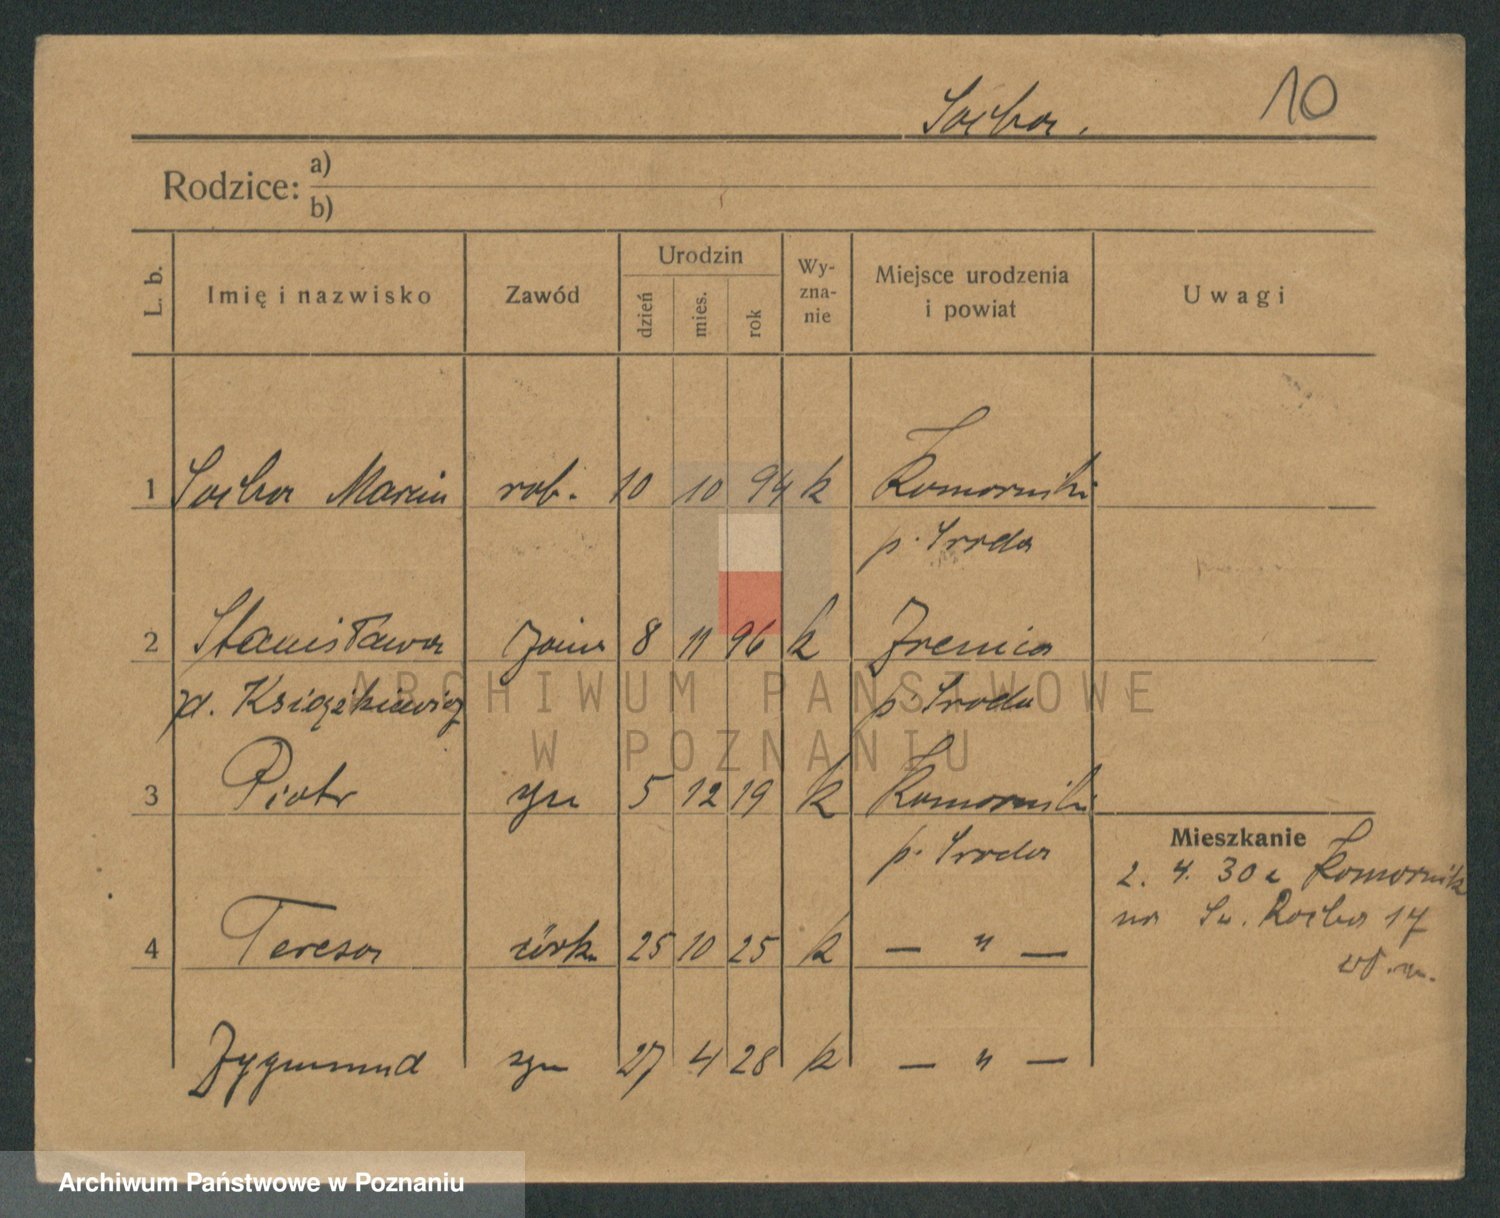 Socha. 10
Rodzice: a)
b)
L. b. Imię i nazwisko Zawód Urodzin dzień mies. rok Wy-zna-nie Miejsce urodzenia i powiat Uwagi
1 Socha Marcin rob. 10 10 94 k Komorniki
p. Sroda
2 Stanisława żona 8 11 96 k Zrenica
zd. Książkiewicz p. Sroda
3 Piotr syn 5 12 19 k Komorniki
p. Sroda
Mieszkanie
2. 4. 30 z Komornik
na Sw. Rocha 17
4 Teresa córka 25 10 25 k — " —
Zygmund syn 27 4 28 k — " —
ARCHIWUM PAŃSTWOWE
W POZNANIU
Archiwum Państwowe w Poznaniu